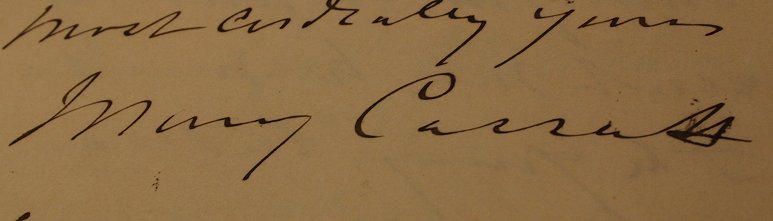 most cordially yours
Mary Cassatt